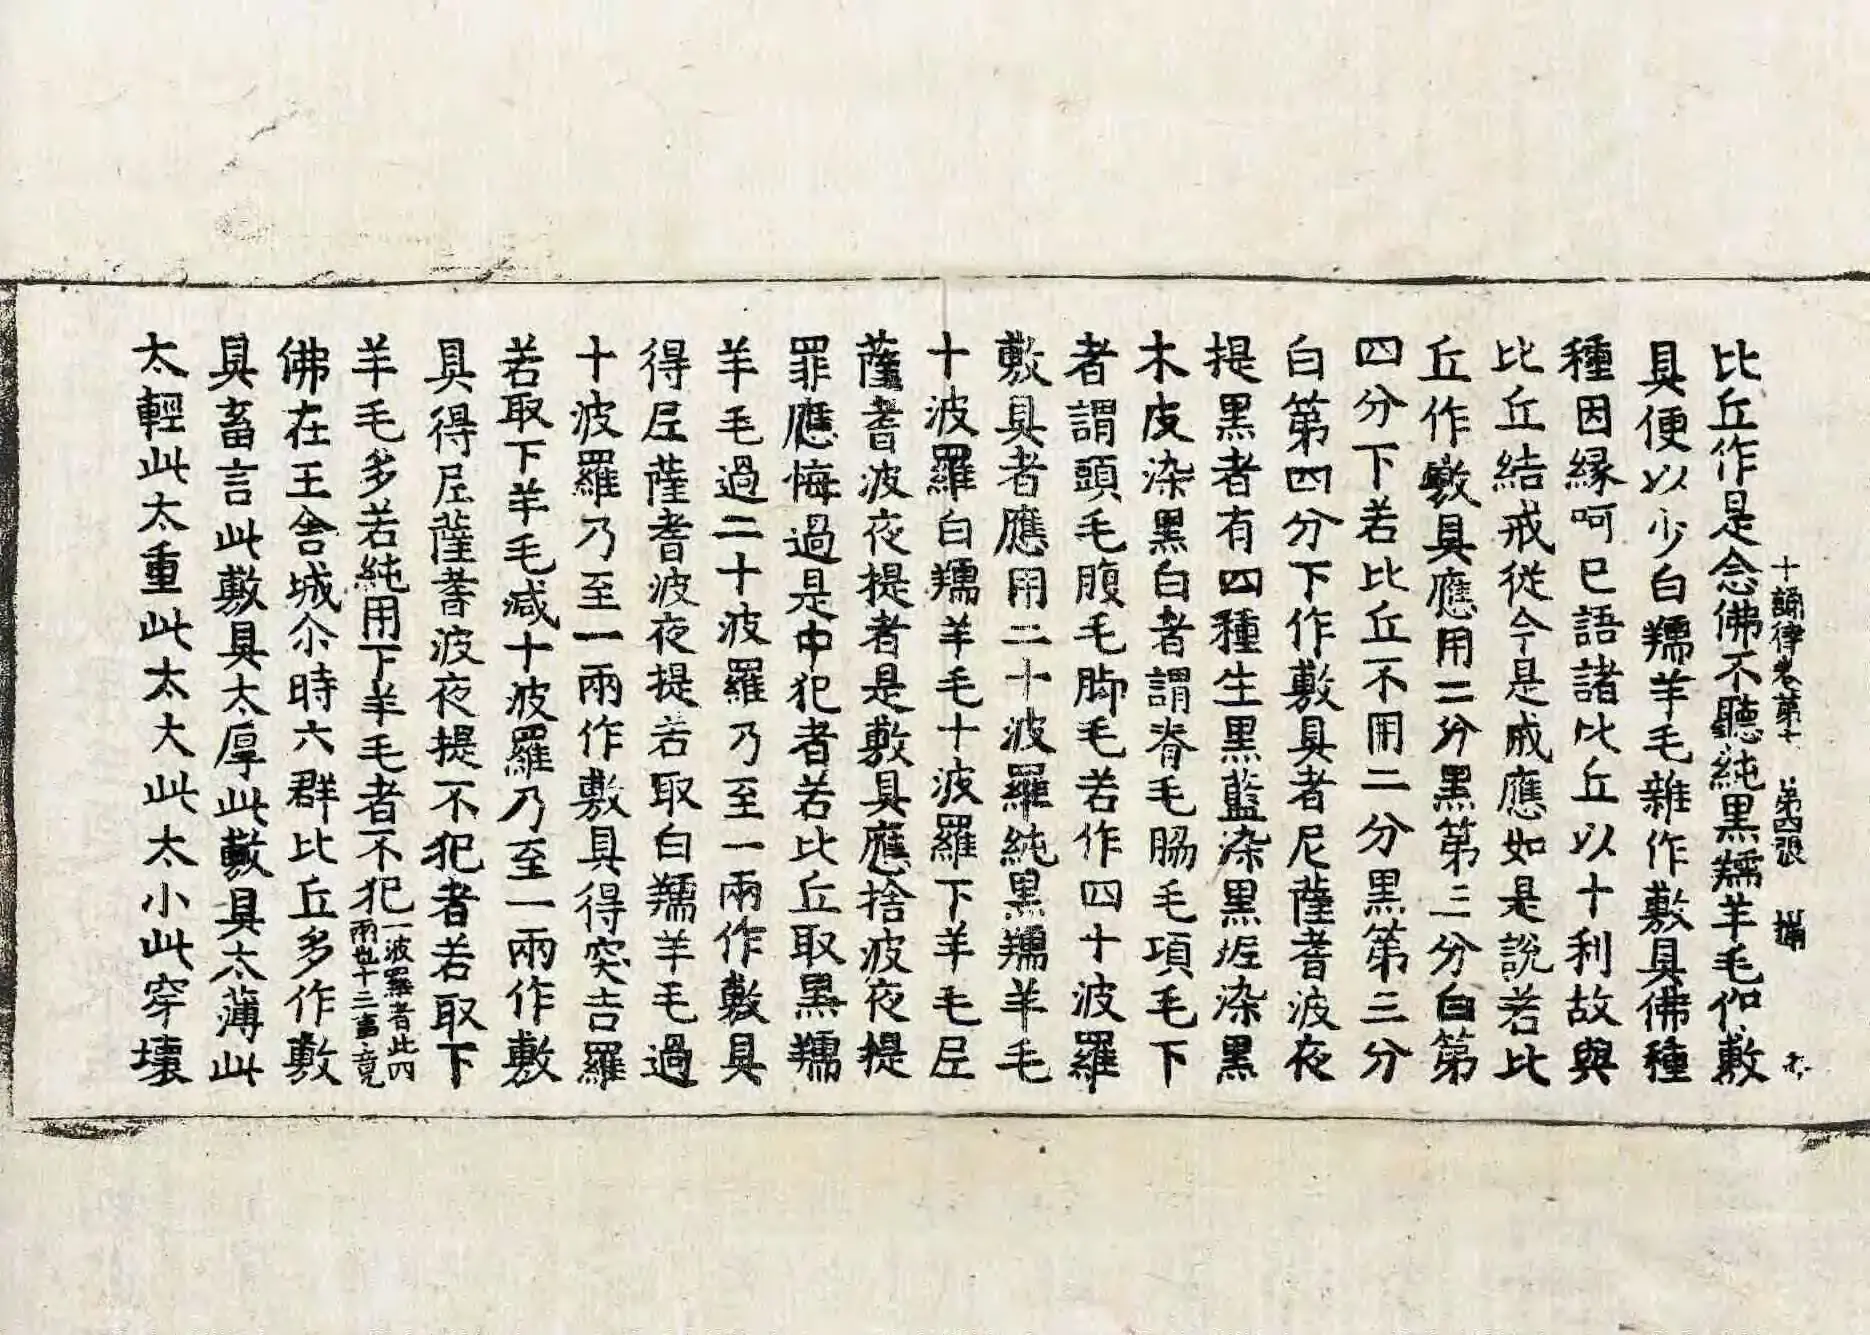 十誦律卷第七 第四張
比丘作是念佛不聽純黑羺羊毛作敷
具便以少白羺羊毛雜作敷具佛種
種因緣呵已語諸比丘以十利故與
比丘結戒從今是戒應如是說若比
丘作敷具應用二分黑第三分白第
四分下若比丘不用二分黑第三分
白第四分下作敷具者尼薩耆波夜
提黑者有四種生黑藍染黑泥染黑
木皮染黑白者謂脊毛脇毛項毛下
者謂頭毛腹毛脚毛若作四十波羅
敷具者應用二十波羅純黑羺羊毛
十波羅白羺羊毛十波羅下羊毛尼
薩耆波夜提者是敷具應捨波夜提
罪應悔過是中犯者若比丘取黑羺
羊毛過二十波羅乃至一兩作敷具
得尼薩耆波夜提若取白羺羊毛過
十波羅乃至一兩作敷具得突吉羅
若取下羊毛減十波羅乃至一兩作敷
具得尼薩耆波夜提不犯者若取下
羊毛多若純用下羊毛者不犯一波羅者此四兩也十三事竟
佛在王舍城尒時六群比丘多作敷
具畜言此敷具太厚此敷具太薄此
太輕此太重此太大此太小此穿壞